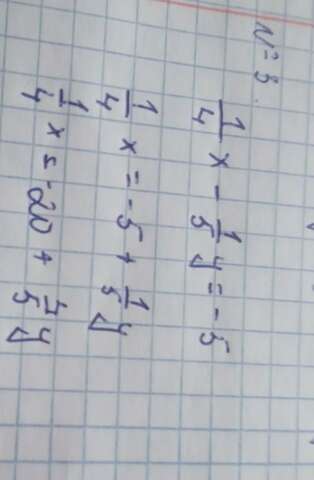 N=3.
1/4 x - 1/5 y = -5
1/4 x = -5 + 1/5 y
1/4 x = -20 + 5/5 y